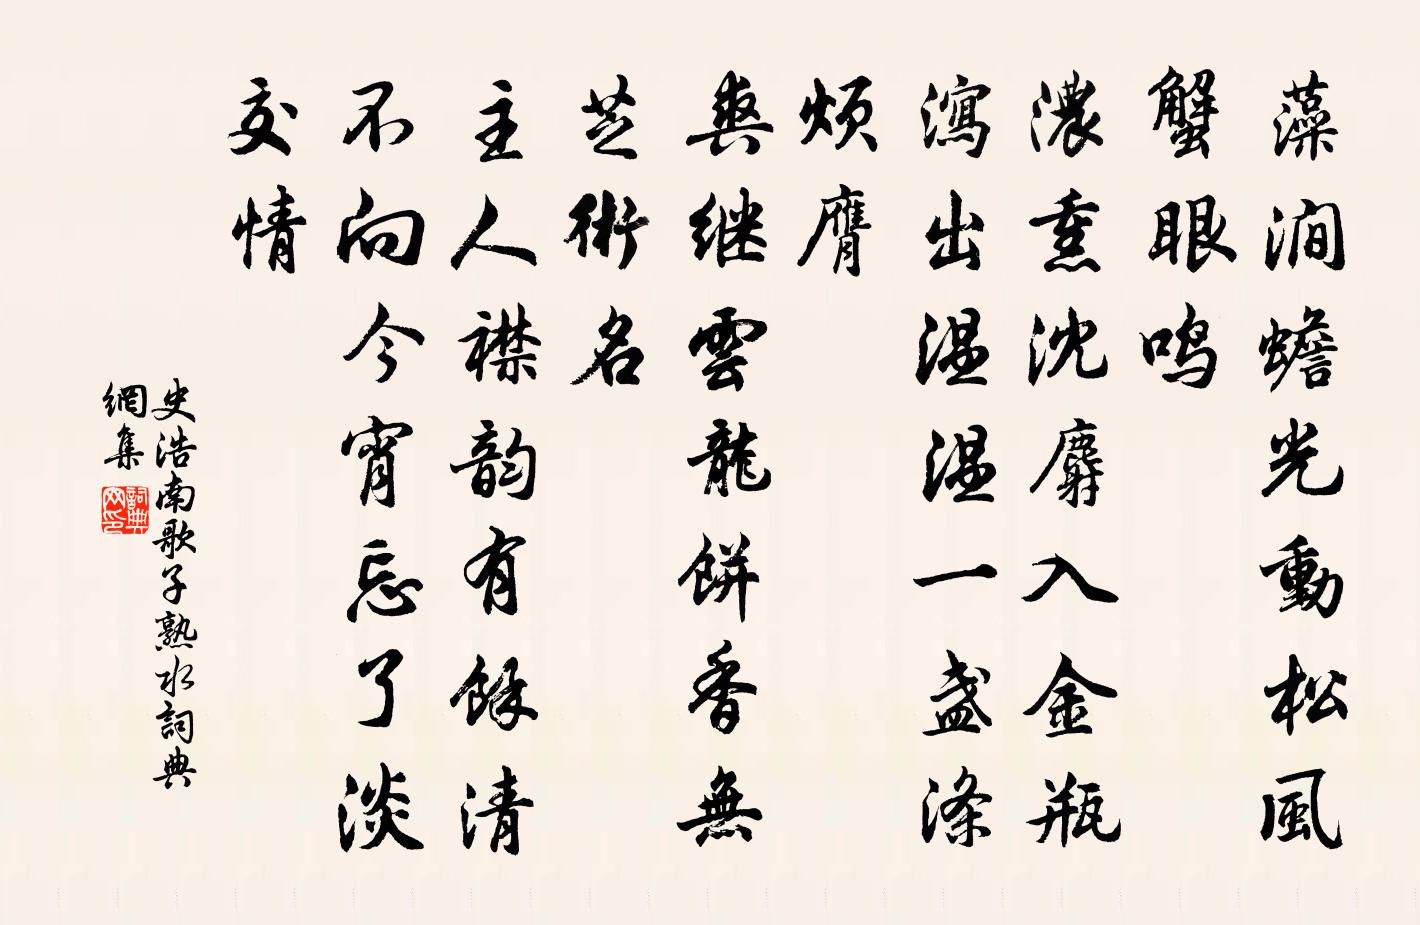 藻澗蟾光動松風
蟹眼鸣
濃熏沈麝入金瓶
瀉出温温一盏滌
烦膺
爽继雲龍餅香無
芝術名
主人襟韵有餘清
不向今宵忘了淡
交情
史浩南歌子熟水詞典
網集
詞典网印